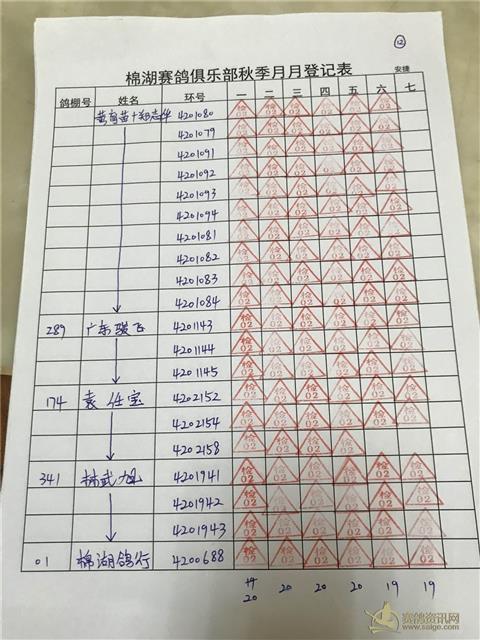 12
棉湖赛鸽俱乐部秋季月月登记表
安捷
鸽棚号 姓名 环号 一 二 三 四 五 六 七
4201080 检02 检02 检02 检02 检02 检02
4201079 检02 检02 检02 检02 检02 检02
4201091 检02 检02 检02 检02 检02 检02
4201092 检02 检02 检02 检02 检02 检02
4201093 检02 检02 检02 检02 检02 检02
4201094 检02 检02 检02 检02 检02 检02
4201081 检02 检02 检02 检02 检02 检02
4201082 检02 检02 检02 检02 检02 检02
4201083 检02 检02 检02 检02 检02 检02
4201084 检02 检02 检02 检02 检02 检02
289 广东骏飞 4201143 检02 检02 检02 检02 检02 检02
4201144 检02 检02 检02 检02 检02 检02
4201145 检02 检02 检02 检02 检02 检02
174 袁任宝 4202152 检02 检02 检02 检02 检02 检02
4202154 检02 检02 检02 检02 检02 检02
4202158 检02 检02 检02 检02
341 林武旭 4201941 检02 检02 检02 检02 检02 检02
4201942 检02 检02 检02 检02 检02 检02
4201943 检02 检02 检02 检02 检02 检02
01 棉湖鸽行 4200688 检02 检02 检02 检02 检02 检02
20 20 20 20 19 19
赛鸽资讯网
www.saige.com